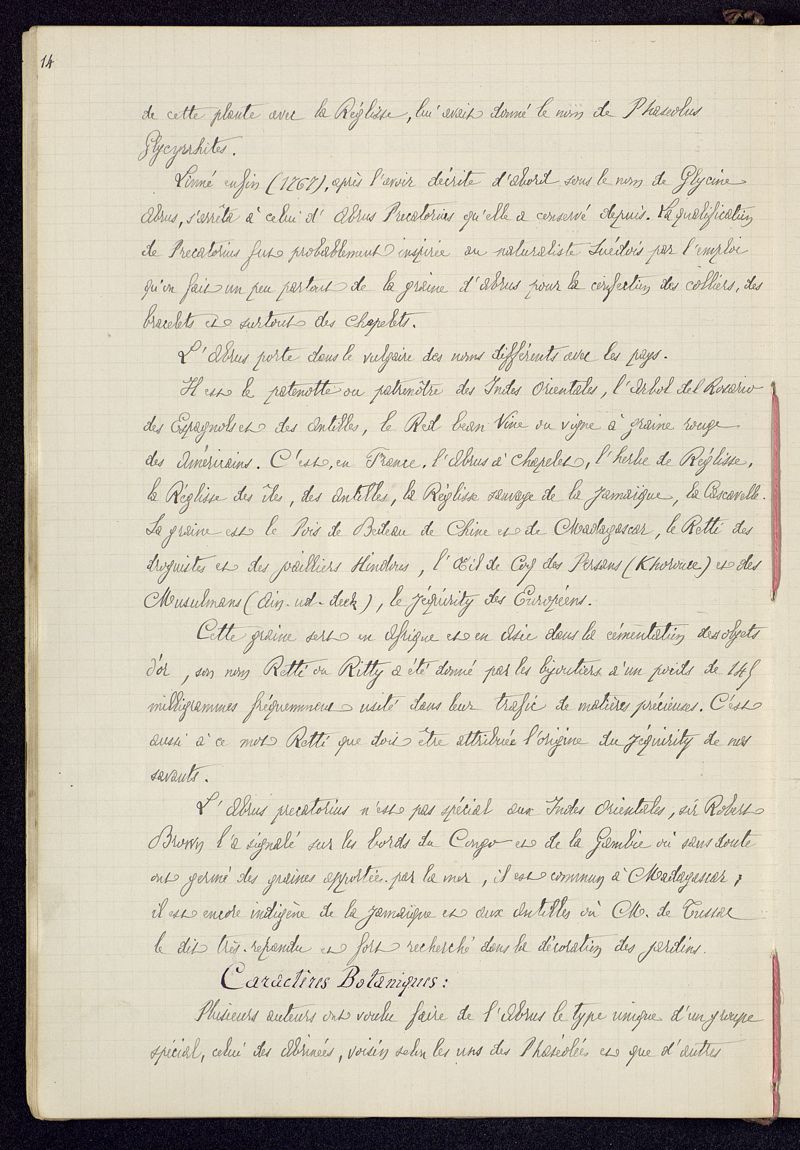 14
de cette plante avec la Réglisse, lui avait donné le nom de Phaseolus
Glycyrrhites.
Linné enfin (1767), après l'avoir décrite d'abord sous le nom de Glycine
Abrus, s'arrêta à celui d'Abrus Precatorius qu'elle a conservé depuis. La qualification
de Precatorius fut probablement inspirée au naturaliste Suédois par l'emploi
qu'on fait un peu partout de la graine d'Abrus pour la confection des colliers, des
bracelets et surtout des Chapelets.
L'Abrus porte dans le vulgaire des noms différents avec les pays.
Il est le patenotte ou patrenôtre des Indes Orientales, l'Arbol del Rosario
des Espagnols et des Antilles, le Red bean Vine ou vigne à graine rouge
des Américains. C'est, en France, l'Abrus à Chapelet, l'herbe de Réglisse,
la Réglisse des îles, des Antilles, la Réglisse sauvage de la Jamaïque, la Cascavelle.
La graine est le Pois de Bedeau de Chine et de Madagascar, le Retti des
droguistes et des joailliers Hindous, l'Œil de Coq des Persans (Khorvuce) et des
Musulmans (Ain-ud-deek), le Jéquirity des Européens.
Cette graine sert en Afrique et en Asie dans la cémentation des objets
d'or, son nom Retti ou Ritty a été donné par les bijoutiers à un poids de 145
milligrammes fréquemment usité dans leur trafic de matières précieuses. C'est
aussi à ce mot Retti que doit être attribuée l'origine du Jéquirity de nos
savants.
L'Abrus precatorius n'est pas spécial aux Indes Orientales, sir Robert
Brown l'a signalé sur les bords du Congo et de la Gambie où sans doute
ont germé des graines apportées par la mer, il est commun à Madagascar,
il est encore indigène de la Jamaïque et aux Antilles où M. de Tussac
le dit très-repandu et fort recherché dans la décoration des jardins.
Caractères Botaniques:
Plusieurs auteurs ont voulu faire de l'Abrus le type unique d'un groupe
spécial, celui des Abrinées, voisin selon les uns des Phaséolées et que d'autres